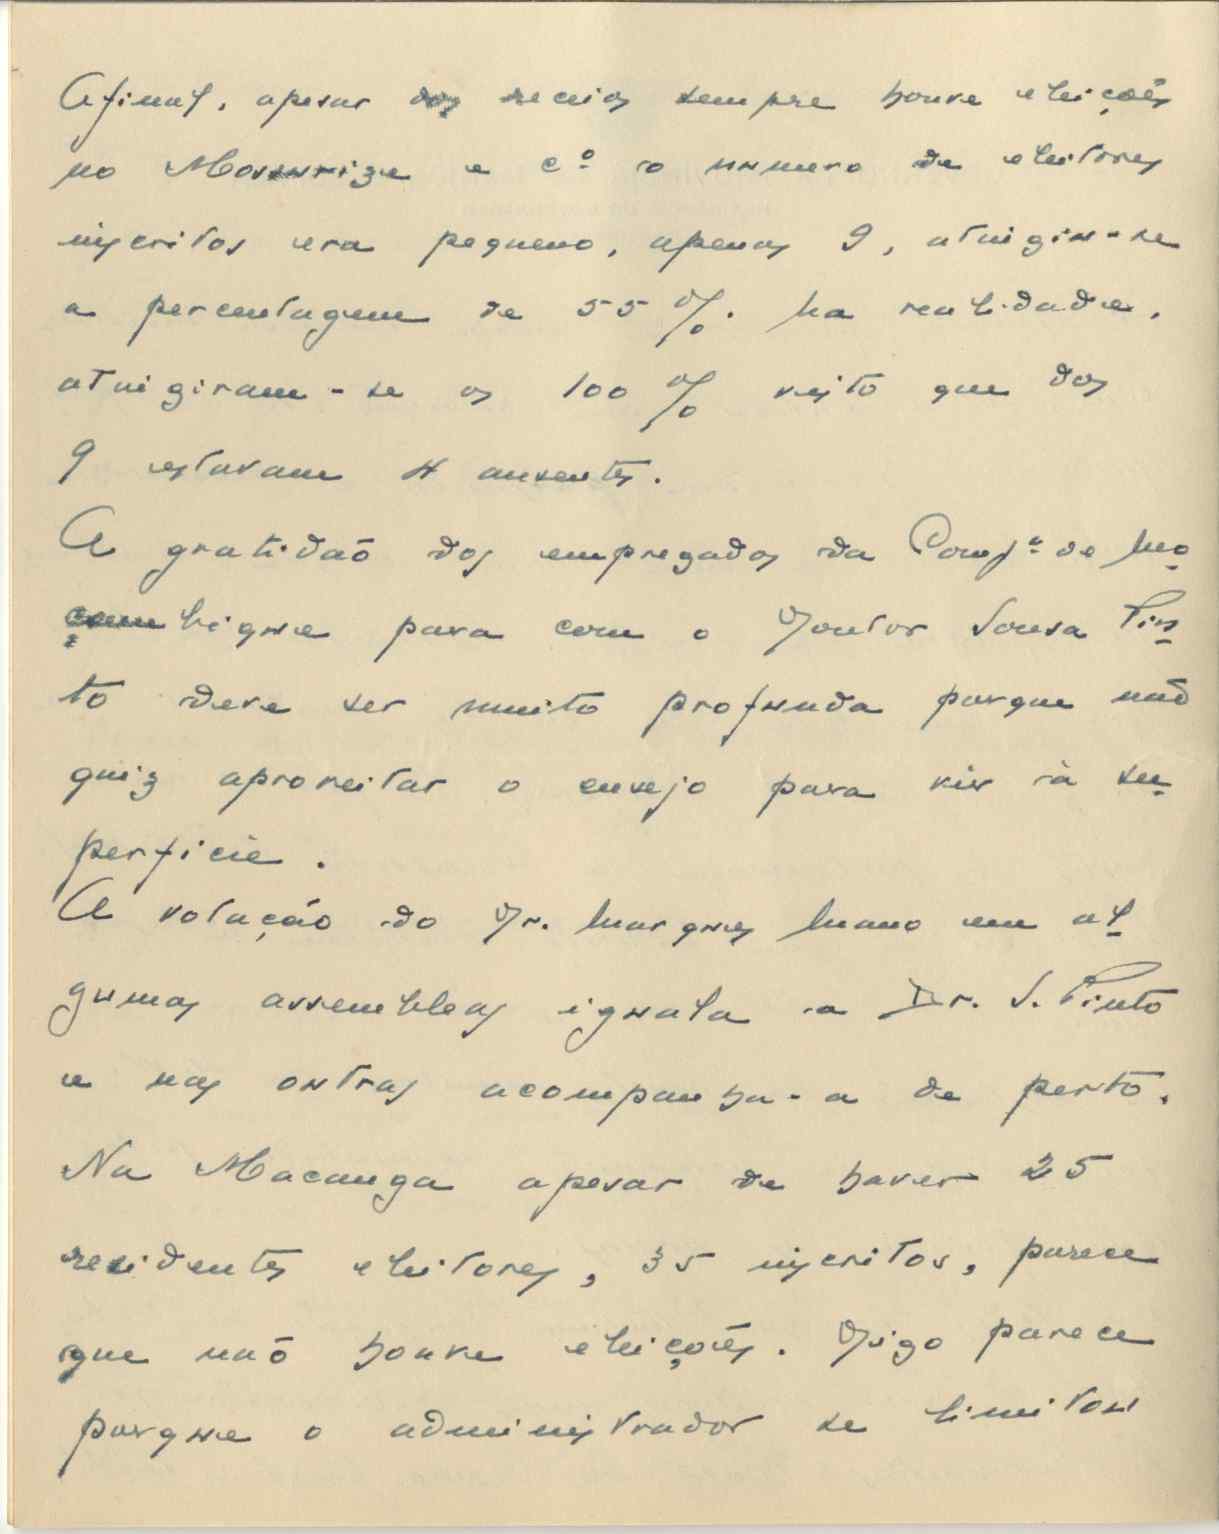 Afinal, apesar dos receios sempre houve eleições
no Mossurize e cº o numero de eleitores
inscritos era pequeno, apenas 9, atingiu-se
a percentagem de 55 %. Na realidade,
atingiram-se os 100 % visto que dos
9 estavam 4 ausentes.
A gratidaõ dos empregados da Compª de Mo-
çambique para com o Doutor Sousa Pin-
to deve ser muito profunda porque naõ
quiz aproveitar o ensejo para vir à su-
perficie.
A votação do Dr. Marques Mano em al-
gumas assembleas iguala a Dr. S. Pinto
e nas outras acompanha-a de perto.
Na Macanga apesar de haver 25
residentes eleitores, 35 inscritos, parece
que naõ houve eleições. Digo parece
porque o administrador se limitou